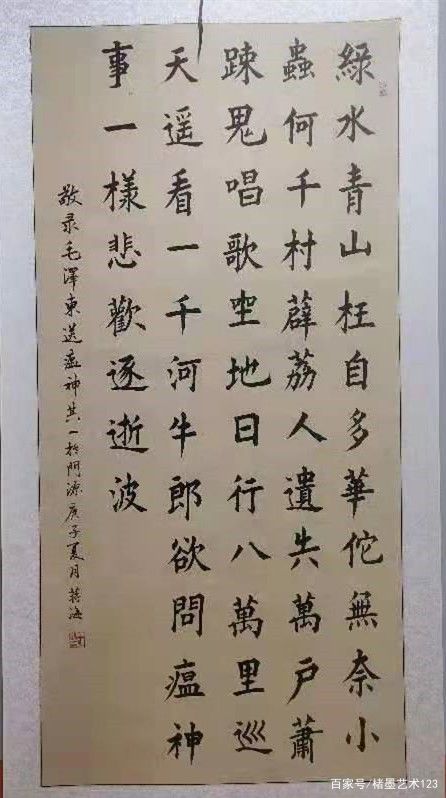 綠水青山枉自多華佗無奈小
蟲何千村薜荔人遺失萬户蕭
踈鬼唱歌坐地日行八萬里巡
天遥看一千河牛郎欲問瘟神
事一樣悲歡逐逝波
敬录毛澤東送瘟神其一於門源庚子夏月蒋海
百家号/楮墨艺术123